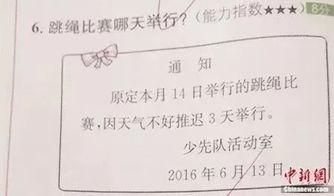 6. 跳绳比赛哪天举行?(能力指数★★★) 8分
通 知
原定本月14日举行的跳绳比
赛,因天气不好推迟3天举行。
少先队活动室
2016年6月13日
中新网
Chinanews.com